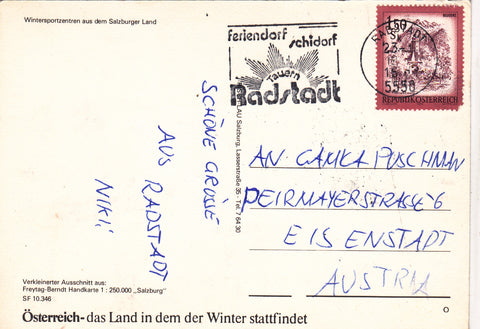 Wintersportzentren aus dem Salzburger Land
feriendorf
schidorf
Tauern
Radstadt
1,50
REPUBLIK ÖSTERREICH
RADSTADT
5550
SCHÖNE GRÜSSE
AUS RADSTADT
NIKI
AU Salzburg, Lasserstraße 35 · Tel. 7 64 30
AN GAMKA PUSCHMAN
DEIRMAYERSTRASSE 6
EISENSTADT
AUSTRIA
Verkleinerter Ausschnitt aus:
Freytag-Berndt Handkarte 1 : 250.000 „Salzburg"
SF 10.346
Österreich - das Land in dem der Winter stattfindet